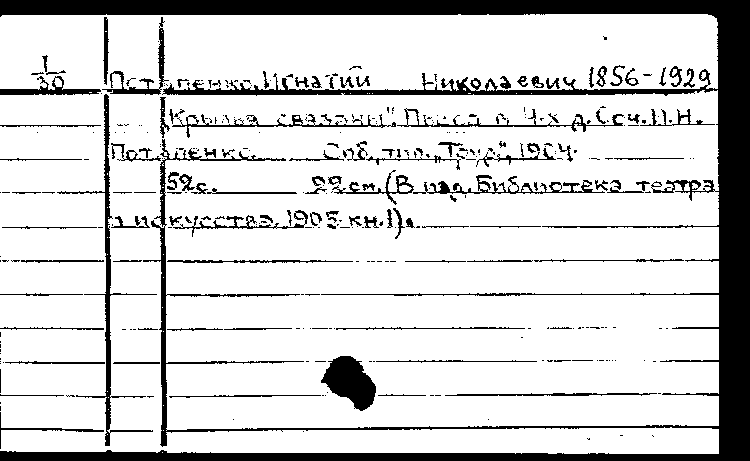 1/30 Потапенко, Игнатий Николаевич 1856-1929
„Крылья связаны". Пьеса в 4-х д. Соч. И.Н.
Потапенко. Спб., тип. „Труд", 1904.
52 с. 22 см. (В изд. Библиотека театра
и искусства. 1905 кн. 1).